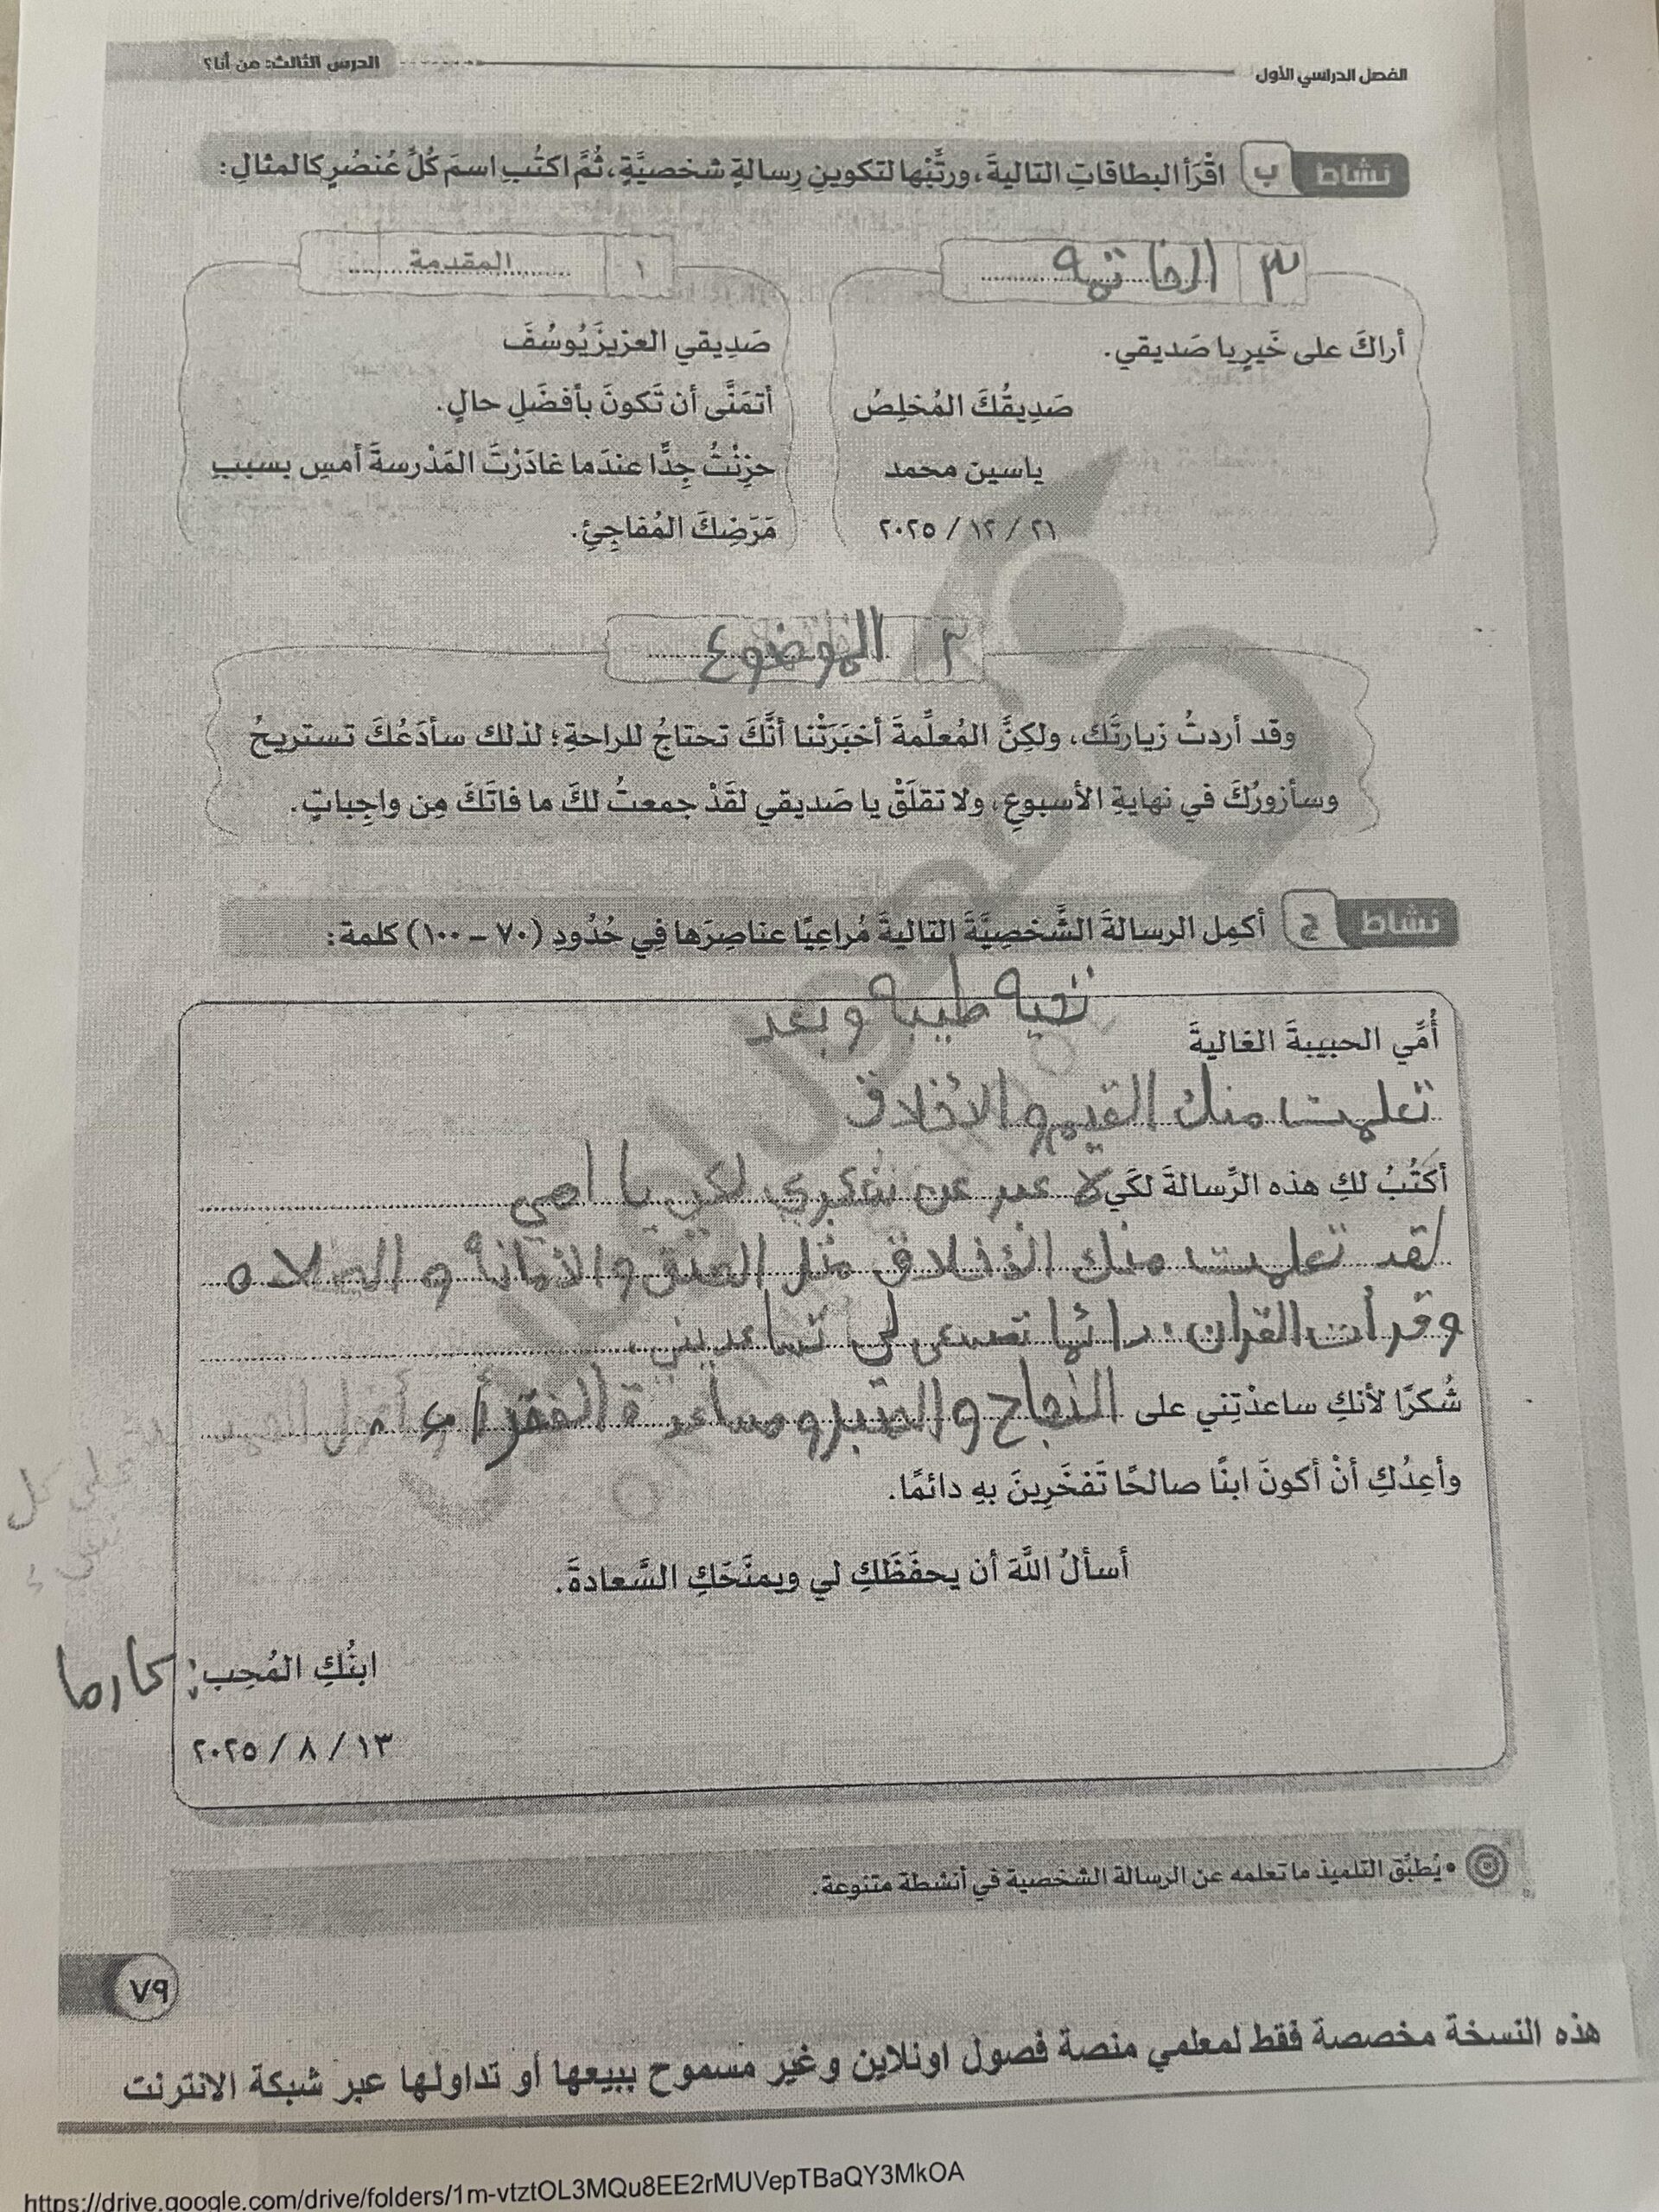 الفصل الدراسي الأول
الدرس الثالث: من أنا؟
نشاط ب اقْرَأ البطاقاتِ التاليةَ، ورتِّبْها لتكوينِ رِسالةٍ شخصيَّةٍ، ثُمَّ اكتُبِ اسمَ كُلِّ عُنصُرٍ كالمثالِ:
٣ الخاتمه
أراكَ على خَيرٍ يا صَديقي.
صَدِيقُكَ المُخلِصُ
ياسين محمد
٢١ / ١٢ / ٢٠٢٥
١ المقدمة
صَدِيقي العزيزَ يُوسُفَ
أتمَنَّى أن تَكونَ بأفضَلِ حالٍ.
حزِنْتُ جِدًّا عندَما غادَرْتَ المَدْرسةَ أمسِ بسببِ
مَرَضِكَ المُفاجِئِ.
٢ الموضوع
وقد أردتُ زيارتَك، ولكِنَّ المُعلِّمةَ أخبَرَتْنا أنَّكَ تحتاجُ للراحةِ؛ لذلك سأدَعُكَ تستريحُ
وسأزورُكَ في نهايةِ الأسبوعِ، ولا تقلَقْ يا صَديقي لقَدْ جمعتُ لكَ ما فاتَكَ مِن واجِباتٍ.
نشاط ج أكمِل الرسالةَ الشَّخصِيَّةَ التاليةَ مُراعِيًا عناصِرَها فِي حُدُودِ (٧٠ – ١٠٠) كلمة:
أُمِّي الحبيبةَ الغاليةَ تحيه طيبه وبعد
تعلمت منك القيم والأخلاق
أكتُبُ لكِ هذه الرِّسالةَ لكَي لا عبر عن شكري لكن يا امي
لقد تعلمت منك الأخلاق مثل الصدق والأمانه و الصلاه
وقرأت القران. دائما تسعى لي تساعديني.
شُكرًا لأنكِ ساعدْتِني على النجاح والصبر ومساعدة الفقرأ
على كل
وأعِدُكِ أنْ أكونَ ابنًا صالحًا تَفخَرِينَ بهِ دائمًا.
أسألُ اللَّهَ أن يحفَظَكِ لي ويمنَحَكِ السَّعادةَ.
ابنُكِ المُحِب: كارما
١٣ / ٨ / ٢٠٢٥
• يُطبِّق التلميذ ما تعلمه عن الرسالة الشخصية في أنشطة متنوعة.
٧٩
هذه النسخة مخصصة فقط لمعلمي منصة فصول اونلاين وغير مسموح ببيعها أو تداولها عبر شبكة الانترنت
https://drive.google.com/drive/folders/1m-vtztOL3MQu8EE2rMUVepTBaQY3MkOA